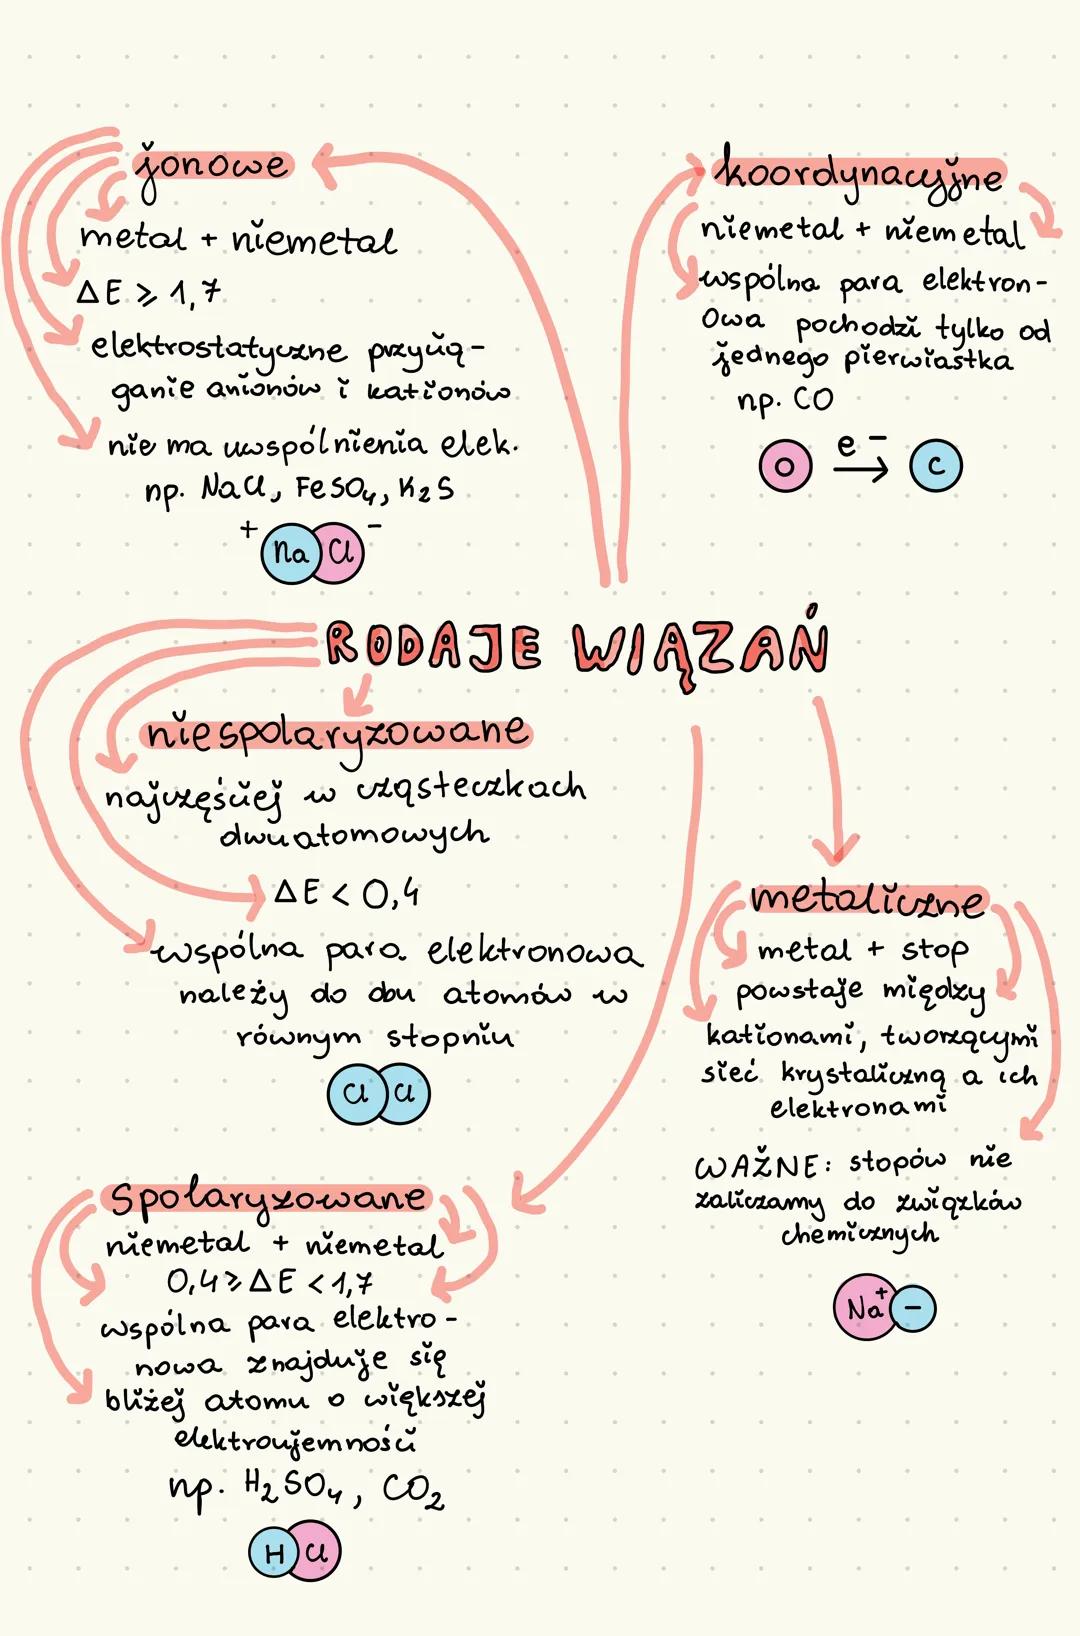 jonowe
metal + niemetal
ΔE ⩾ 1,7
elektrostatyczne przycią-
ganie anionów i kationów
nie ma uwspólnienia elek.
np. NaCl, FeSO₄, K₂S
+ Na Cl -
koordynacyjne
niemetal + niemetal
wspólna para elektron-
owa pochodzi tylko od
jednego pierwiastka
np. CO
O e⁻ → C
RODAJE WIĄZAŃ
niespolaryzowane
najczęściej w cząsteczkach
dwuatomowych
ΔE < 0,4
wspólna para elektronowa
należy do obu atomów w
równym stopniu
Cl Cl
metaliczne
metal + stop
powstaje między
kationami, tworzącymi
sieć krystaliczną a ich
elektronami
WAŻNE: stopów nie
zaliczamy do związków
chemicznych
Na⁺ -
Spolaryzowane
niemetal + niemetal
0,4 ⩾ ΔE < 1,7
wspólna para elektro-
nowa znajduje się
bliżej atomu o większej
elektroujemności
np. H₂SO₄, CO₂
H Cl